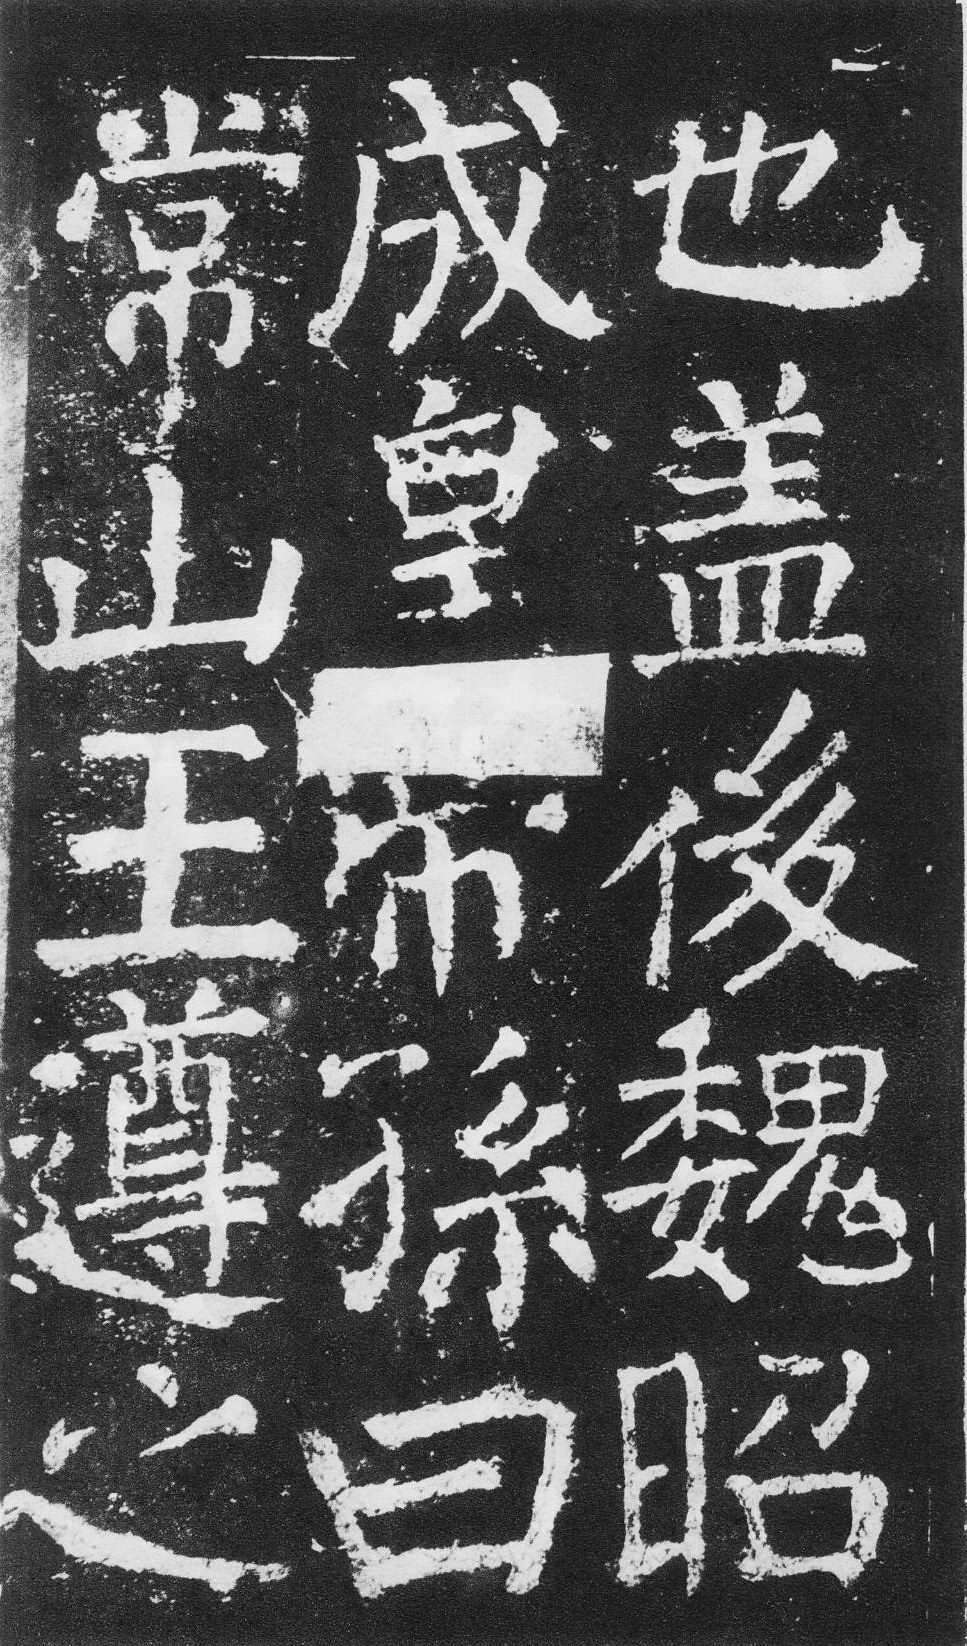 也盖後魏昭
成皇帝孫曰
常山王遵之